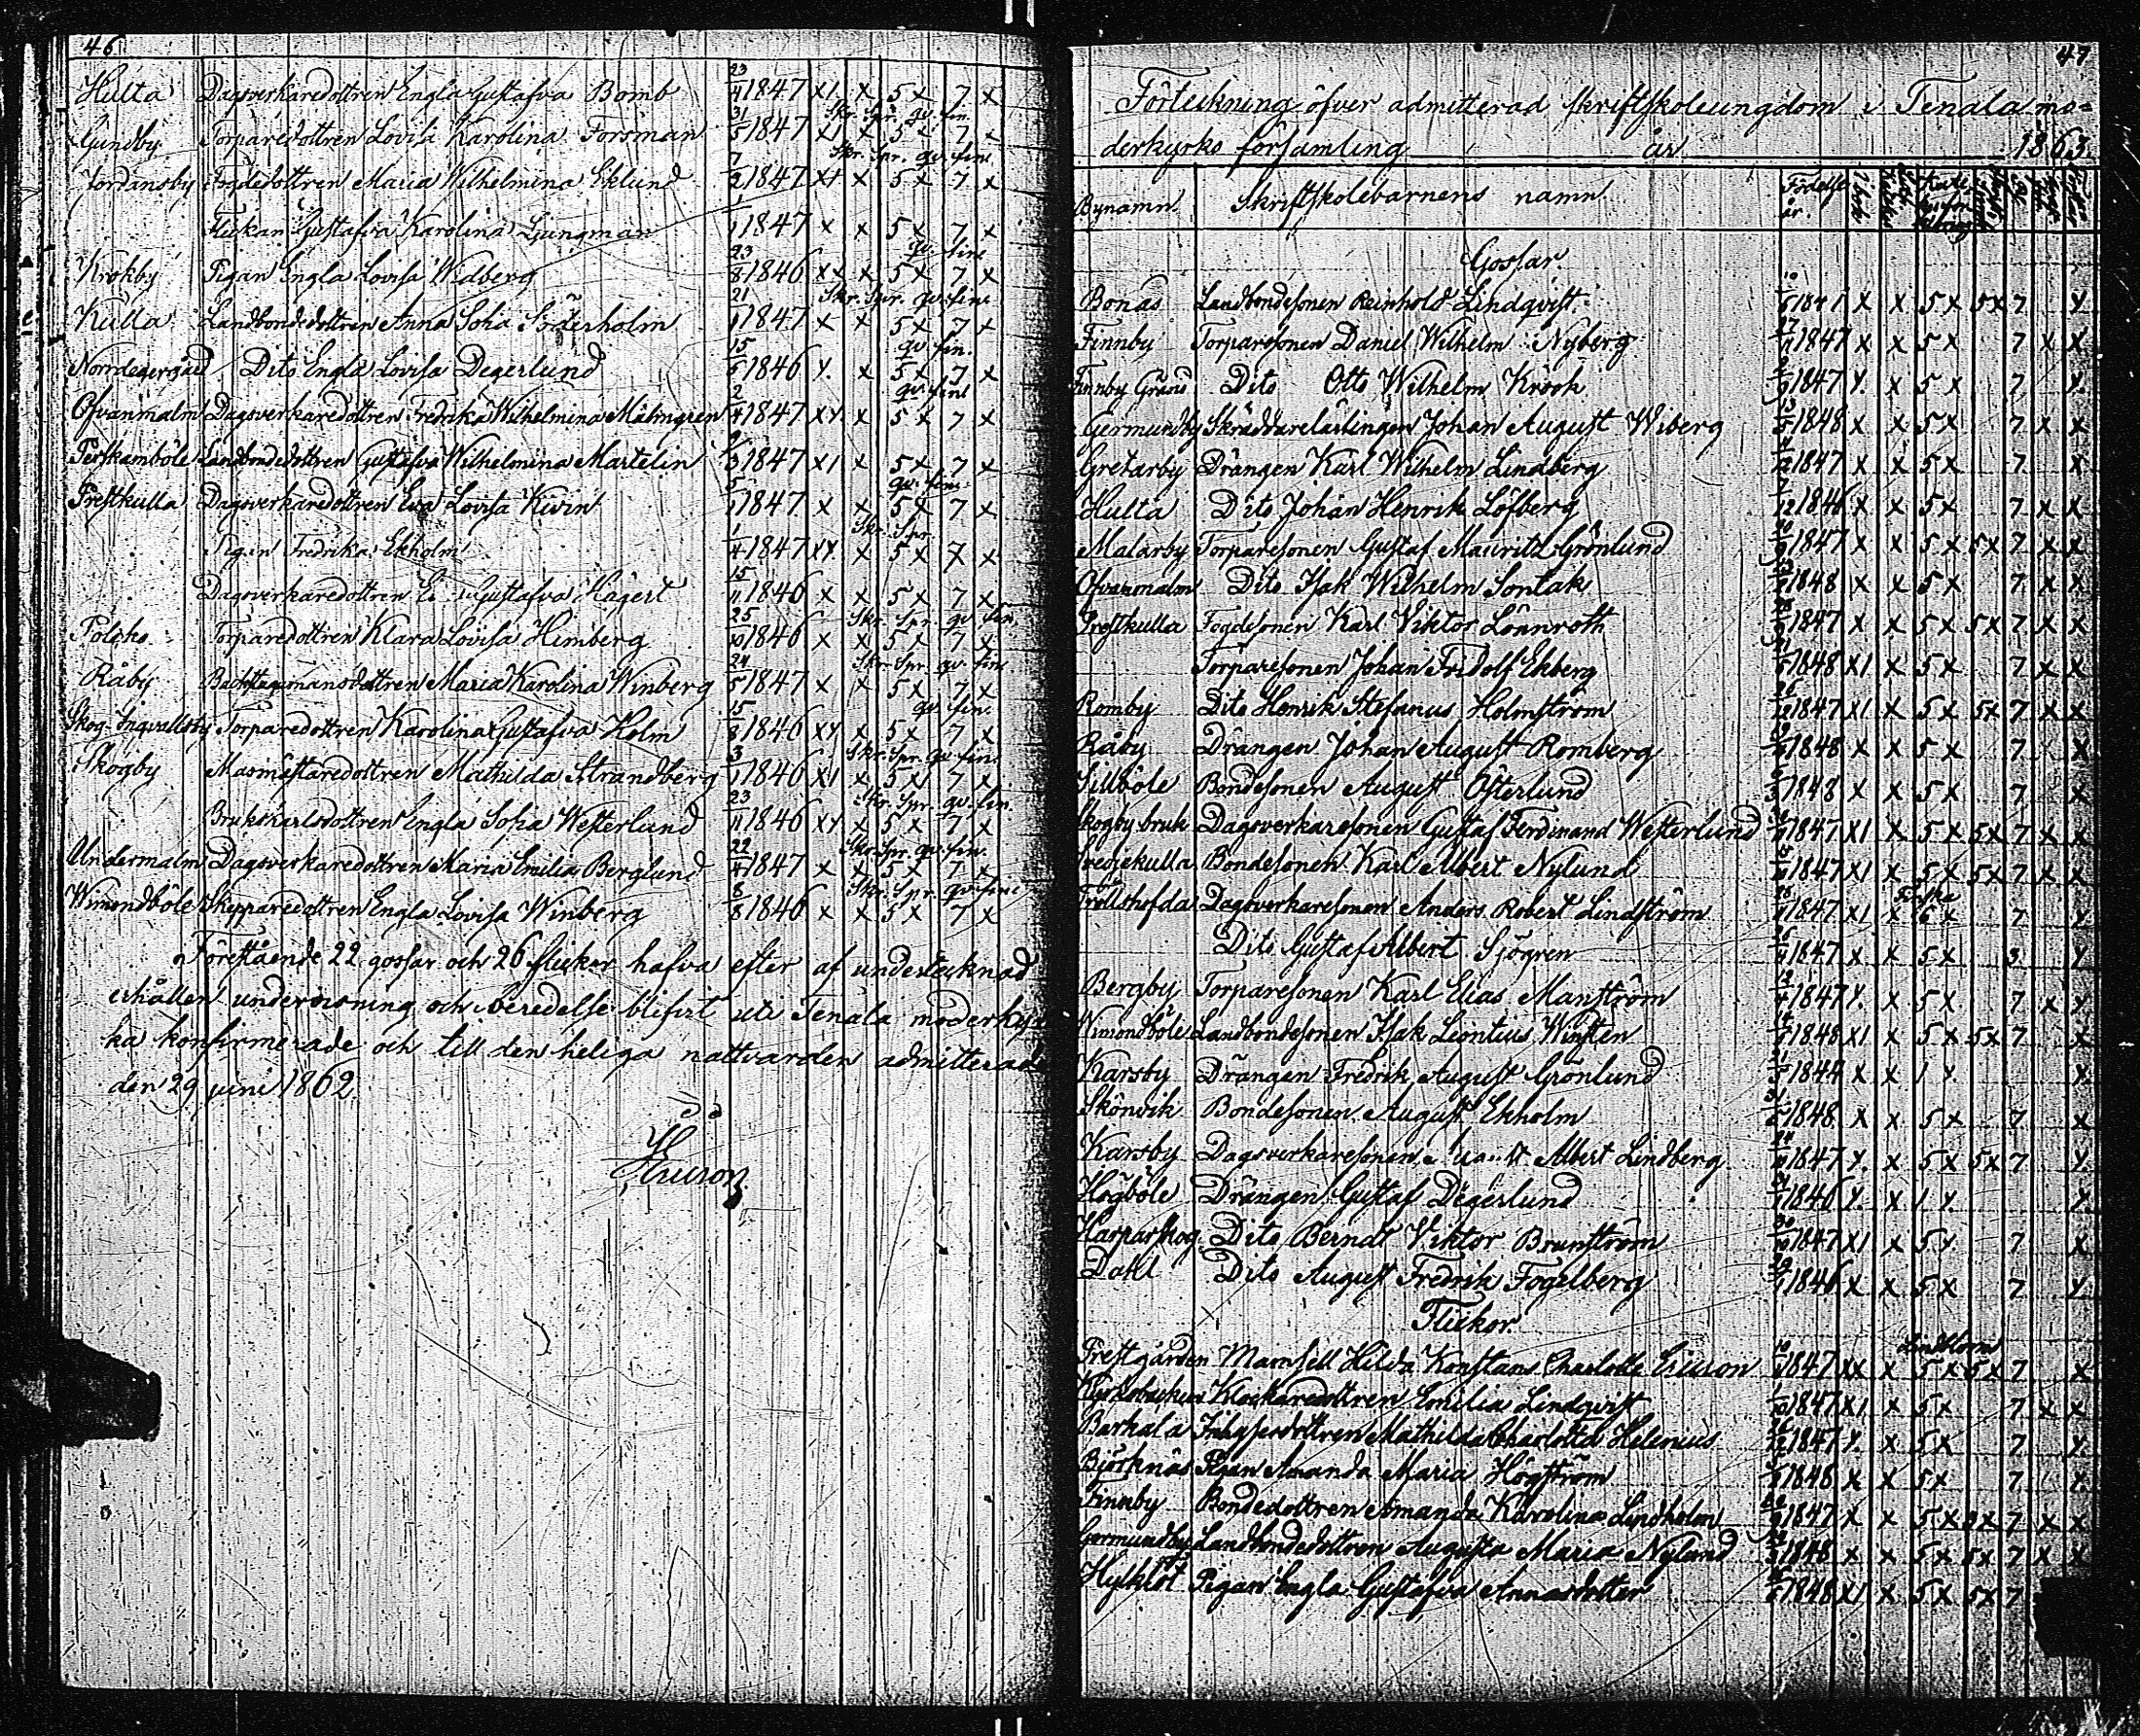 46
Hulta Dagsverkaredottren Engla Gustafva Bomb 23/4 1847 XI X 5 X 7 X
Skr. Spr. qv. fin.
Gundby Torparedottren Lovisa Karolina Forsman 31/5 1847 XI X 5 X 7 X
Skr. Spr. qv. fin.
Jordansby Fogdedottren Maria Wilhelmina Eklund 7/2 1847 XX X 5 X 7 X
Flickan Gustafva Karolina Ljungman 1/1 1847 X X 5 X 7 X
qv. fin.
Krokby Pigan Engla Lovisa Widberg 23/8 1846 XX X 5 X 7 X
Skr. Spr. qv. fin.
Kulla Landbondedottren Anna Sofia Söderholm 21/1 1847 X X 5 X 7 X
qv. fin.
Norrdegergård Dito Engla Lovisa Degerlund 15/5 1846 X X 5 X 7 X
qv. fin.
Ofvanmalm Dagsverkaredottren Fredrika Wilhelmina Malmgren 2/4 1847 XX X 5 X 7 X
Perskamböle Landbondedottren Gustafva Wilhelmina Martelin 9/3 1847 XI X 5 X 7 X
qv. fin.
Prestkulla Dagsverkaredottren Eva Lovisa Kivin 5/1 1847 X X 5 X 7 X
Skr. Spr.
Pigan Fredrika Ekholm 1/4 1847 XX X 5 X 7 X
Dagsverkaredottren Gustafva Hägert 15/11 1846 X X 5 X 7 X
Skr. Spr. qv. fin.
Torparedottren Klara Lovisa Himberg 25/10 1846 X X 5 X 7 X
Skr. Spr. qv. fin.
Råby Maria Karolina Winberg 24/5 1847 X X 5 X 7 X
qv. fin.
Skog-Ingvallsby Torparedottren Karolina Gustafva Holm 15/8 1846 XX X 5 X 7 X
Skr. Spr. qv. fin.
Skogby Masmästaredottren Mathilda Strandberg 3/1 1846 XI X 5 X 7 X
Skr. Spr. qv. fin.
Brukskarlsdottren Engla Sofia Westerlund 23/11 1846 XX X 5 X 7 X
Skr. Spr. qv. fin.
Undermalm Dagsverkaredottren Maria Emilia Berglund 22/4 1847 X X 5 X 7 X
Skr. Spr. qv. fin.
Wimondböle Skepparedottren Engla Lovisa Winberg 8/8 1846 X X 5 X 7 X
Förestående 22 gossar och 26 flickor hafva efter af undertecknad
erhållen undervisning och beredelse blifvit uti Tenala moderkyr
ka konfirmerade och till den heliga nattvarden admitterade
den 29 juni 1862.
47
Förteckning öfver admitterad skriftskoleungdom i Tenala mo=
derkyrko församling år 1863
Bynamn. Skriftskolebarnens namn. Födelse år.
Gossar.
Bonäs Landbondesonen Reinhold Lindqvist 1841 X X 5 X 5X 7 X
Finnby Torparesonen Daniel Wilhelm Nyberg 1847 X X 5 X 7 X X
Finnby Gränd Dito Otto Wilhelm Krook 1847 X X 5 X 7 X
Germundby Skräddarelärlingen Johan August Wiberg 1848 X X 5 X 7 X X
Gretarby Drängen Karl Wilhelm Lindberg 1847 X X 5 X 7 X
Hulta Dito Johan Henrik Löfberg 1846 X X 5 X 7 X X
Malarby Torparesonen Gustaf Mauritz Grönlund 1847 X X 5 X 5X 7 X X
Ofvanmalm Dito Isak Wilhelm Sontak 1848 X X 5 X 7 X X
Prestkulla Fogdesonen Karl Viktor Lönnroth 1847 X X 5 X 5X 7 X X
Torparesonen Johan Fridolf Ekberg 1848 XI X 5 X 7 X X
Romby Dito Henrik Stefanus Holmström 1847 XI X 5 X 5X 7 X X
Råby Drängen Johan August Romberg 1848 X X 5 X 7 X
Sillböle Bondesonen August Österlund 1848 X X 5 X 7 X
Skogby bruk Dagsverkaresonen Gustaf Ferdinand Westerlund 1847 XI X 5 X 5X 7 X X
Svedjekulla Bondesonen Karl Albert Nylund 1847 XI X 5 X 5X 7 X X
Finska
Trollshofda Dagsverkaresonen Anders Robert Lindström 1847 XI X 7 X
Dito Gustaf Albert Sjögren 1847 X X 5 X 3 X
Bergby Torparesonen Karl Elias Manström 1847 X X 5 X 7 X X
Wimondböle Landbondesonen Isak Leontius Winsten 1848 XI X 5 X 5X 7 X
Karsby Drängen Fredrik August Grönlund 1844 X X 1 X X
Skönvik Bondesonen August Ekholm 1848 X X 5 X 7 X
Karsby Dagsverkaresonen Albert Lindberg 1847 X X 5 X 5X 7 X
Högböle Drängen Gustaf Degerlund 1846 X X 1 X X
Harparskog Dito Berndt Viktor Brunström 1847 XI X 5 X 7 X
Dahl Dito August Fredrik Fogelberg 1846 X X 5 X 7 X
Flickor.
Prestgården Mamsell Hilda Konstans Charlotte Ericson 1847 XX X 5 X 5X 7 X
Kyrkobacken Klockaredottren Emilia Lindqvist 1847 XI X 5 X 7 X X
Barkala Mathilda Charlotta Helenius 1847 X X 5 X 7 X
Björknäs Pigan Amanda Maria Högström 1848 X X 5 X 7 X
Finnby Bondedottren Amanda Karolina Lindholm 1847 X X 5 X 7 X X
Germundby Landbondedottren Augusta Maria Nylund 1848 X X 5 X 5X 7 X X
Pigan Engla Gustafva Annasdotter 1848 XI X 5 X 5X 7